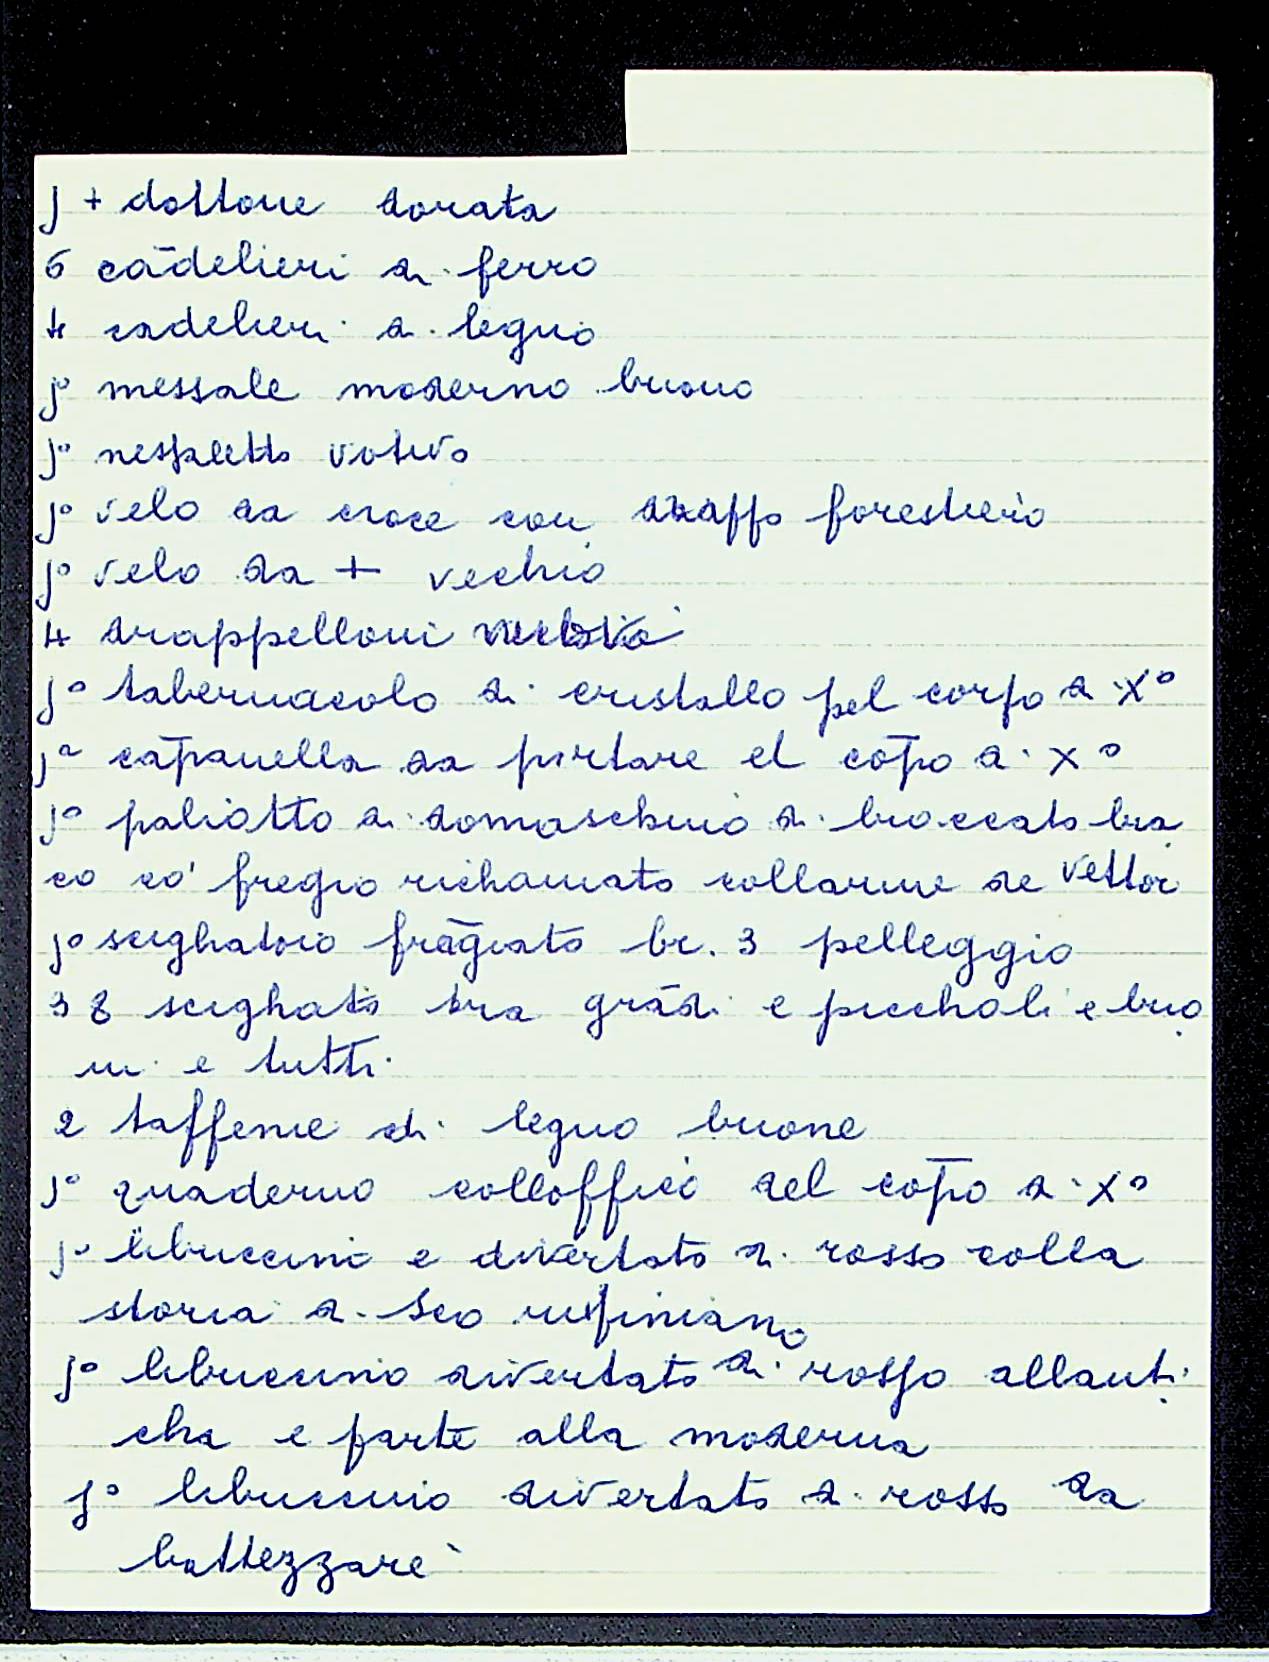 j + dottone dorata
6 cādelieri di ferro
4 cadelieri di legno
j° messale moderno buono
j° votivo
j° velo da croce con drappo forestiero
j° velo da + vechio
4 drappelloni
j° tabernacolo di cristallo pel corpo di Xº
jª cap̄anella da portare el cop̄o di Xº
j° paliotto di domaschino di broccato bia
co co' fregio richamato collarme de Vettori
j° scighatoio frāgiato br. 3 pelleggio
38 scighatoi tra grādi e piccholi e buo
ni e tutti
2 tafferie di legno buone
j° quaderno collofficio del cop̄o di Xº
j° libriccino e divertato di rosso colla
storia di Sco rufiniano
j° libriccino divertato di rosso allanti
cha e parte alla moderna
j° libriccino divertato di rosso da
battezzare